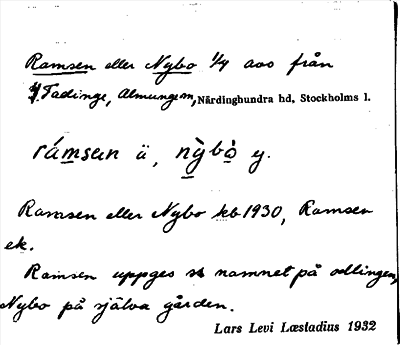 Ramsen eller Nybo 1/4 avs från
Tadinge, Almungem, Närdinghundra hd, Stockholms l.
rámsen ä, nỳbò y.
Ramsen eller Nybo kb 1930, Ramsen
ek.
Ramsen uppges namnet på odlingen,
Nybo på själva gården.
Lars Levi Læstadius 1932